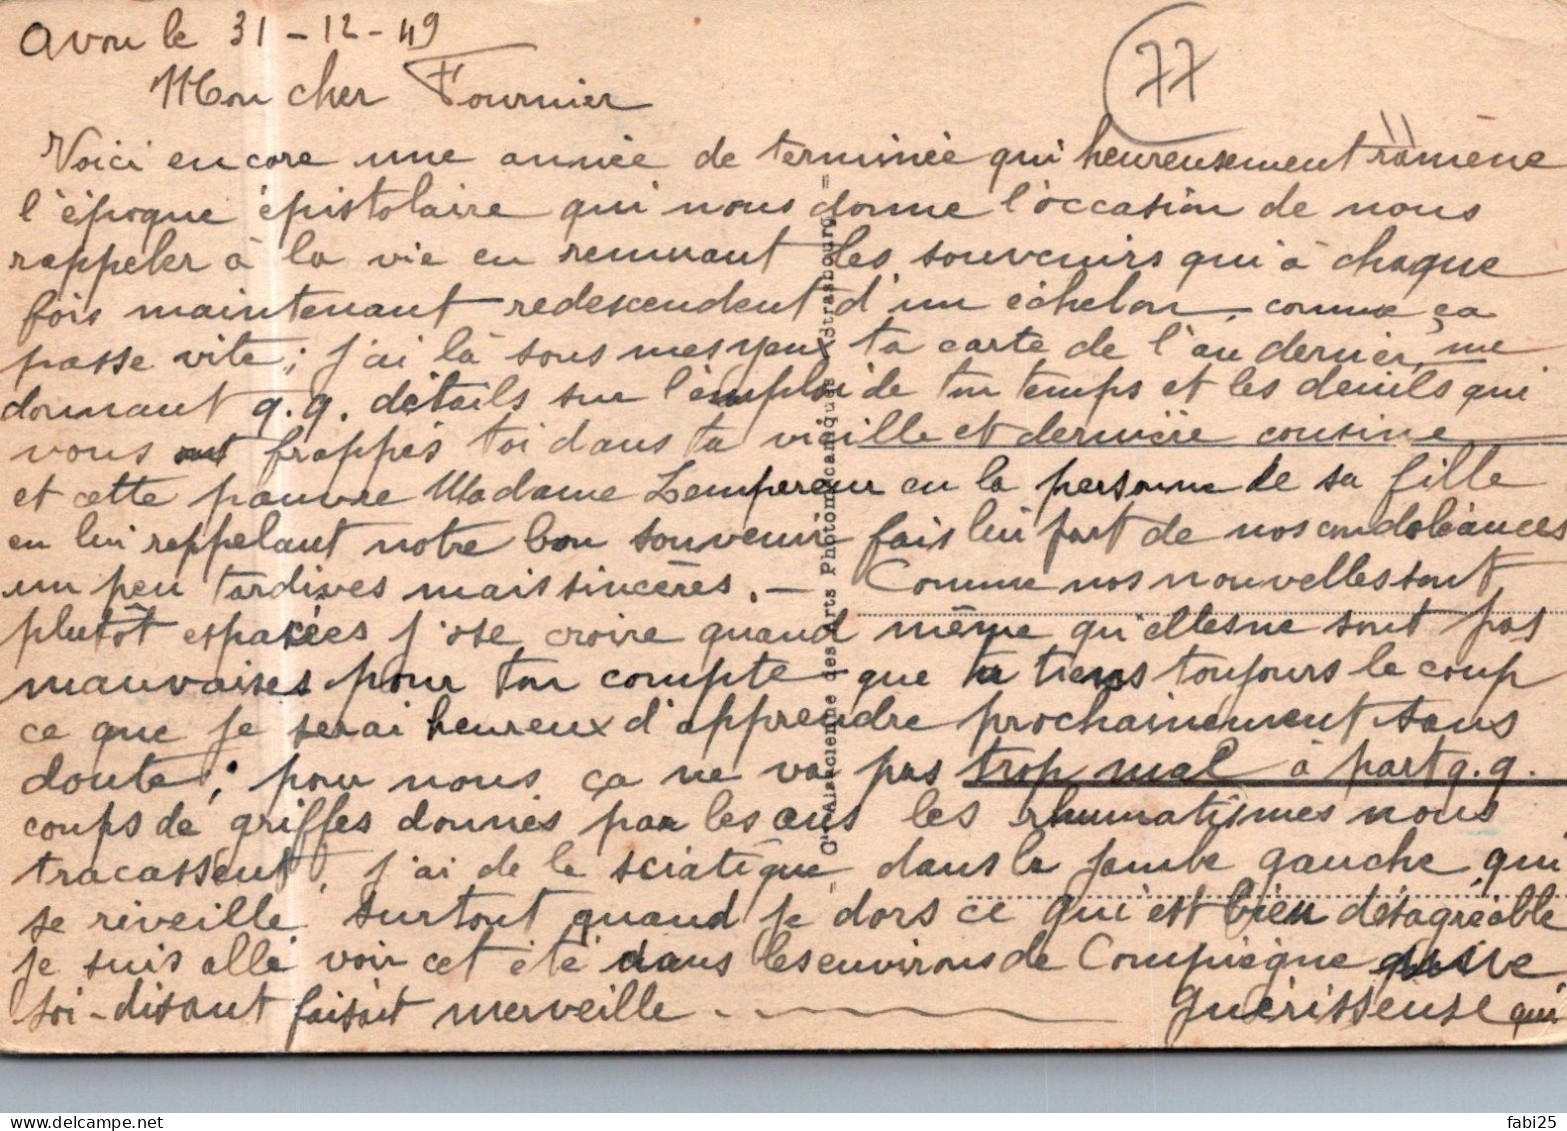 Avon le 31-12-49
77
Mon cher Fournier
Voici encore une année de terminée qui heureusement ramène
l'époque épistolaire qui nous donne l'occasion de nous
rappeler à la vie en remuant les souvenirs qui à chaque
fois maintenant redescendent d'un échelon, comme ça
passe vite; j'ai là sous mes yeux ta carte de l'an dernier, me
donnant q.q. détails sur l'emploi de ton temps et les deuils qui
vous ont frappés toi dans ta vieille et dernière cousine
et cette pauvre Madame Lempereur en la personne de sa fille
en lui rappelant notre bon souvenir fais lui part de nos condoléances
un peu tardives mais sincères. — Comme nos nouvelles sont
plutôt espacées j'ose croire quand même qu'elles ne sont pas
mauvaises pour ton compte que tu tiens toujours le coup
ce que je serai heureux d'apprendre prochainement sans
doute; pour nous ça ne va pas trop mal à part q.q.
coups de griffes donnés par les ans les rhumatismes nous
tracassent, j'ai de la sciatique dans la jambe gauche, qui
se réveille surtout quand je dors ce qui est bien désagréable
je suis allé voir cet été dans les environs de Compiègne
guérisseuse qui
soi-disant faisait merveille
Cie Alsacienne des Arts Photomécaniques - Strasbourg
fabi25